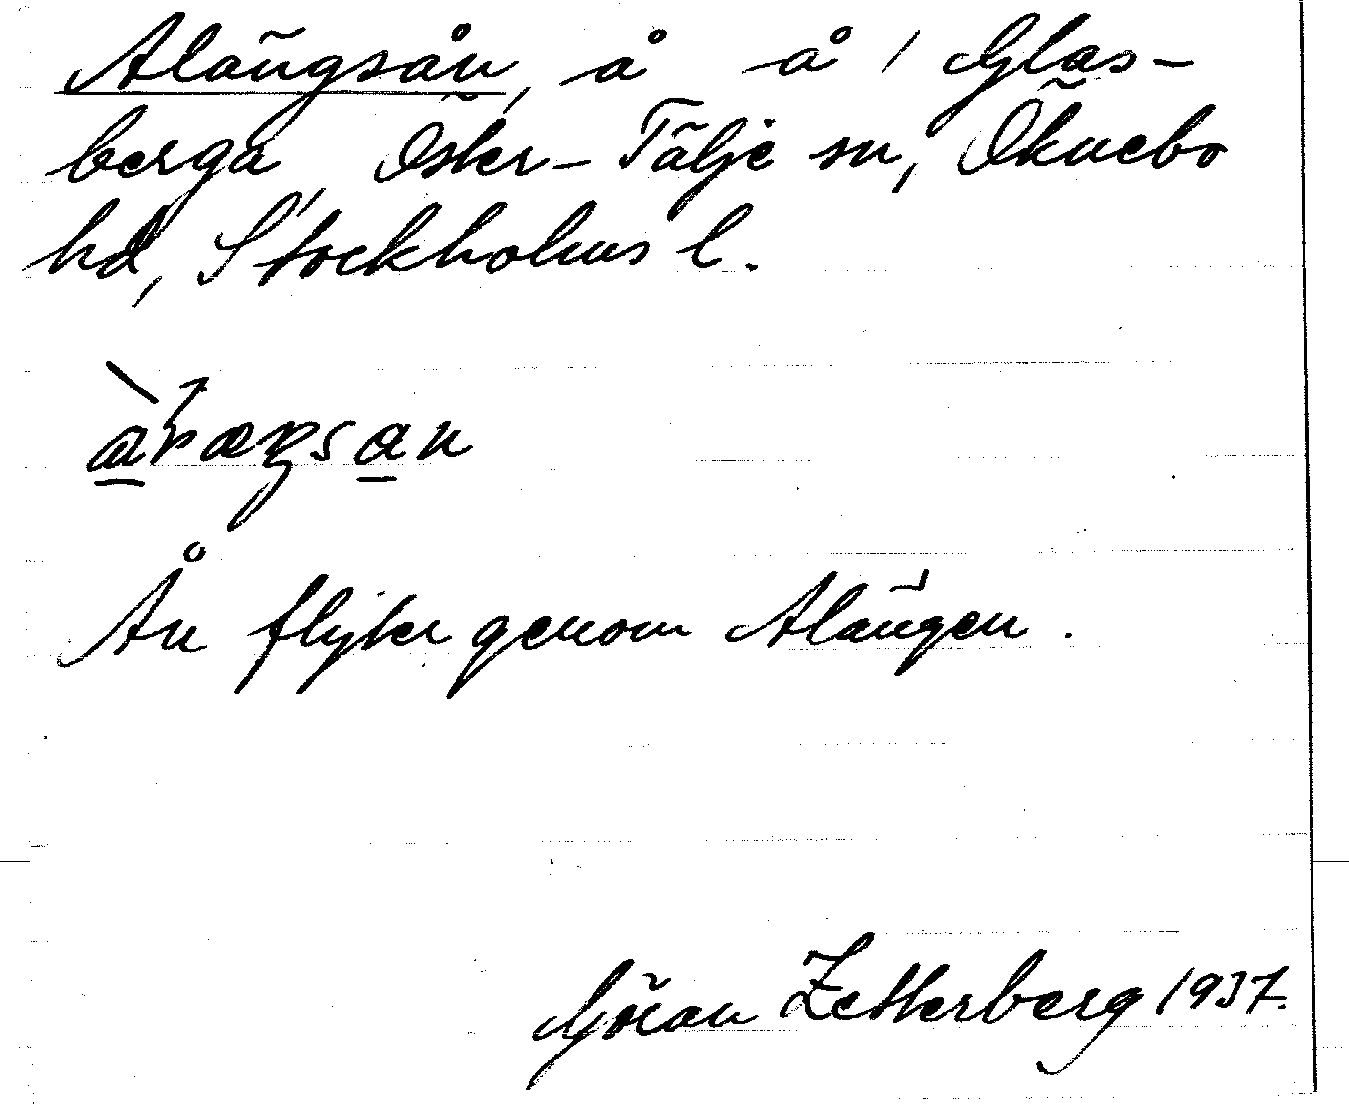 Alängsån, å å i Glas-
berga, Öster-Tälje sn, Öknebo
hd, Stockholms l.
Ån flyter genom Alängen.
Göran Zetterberg 1937.